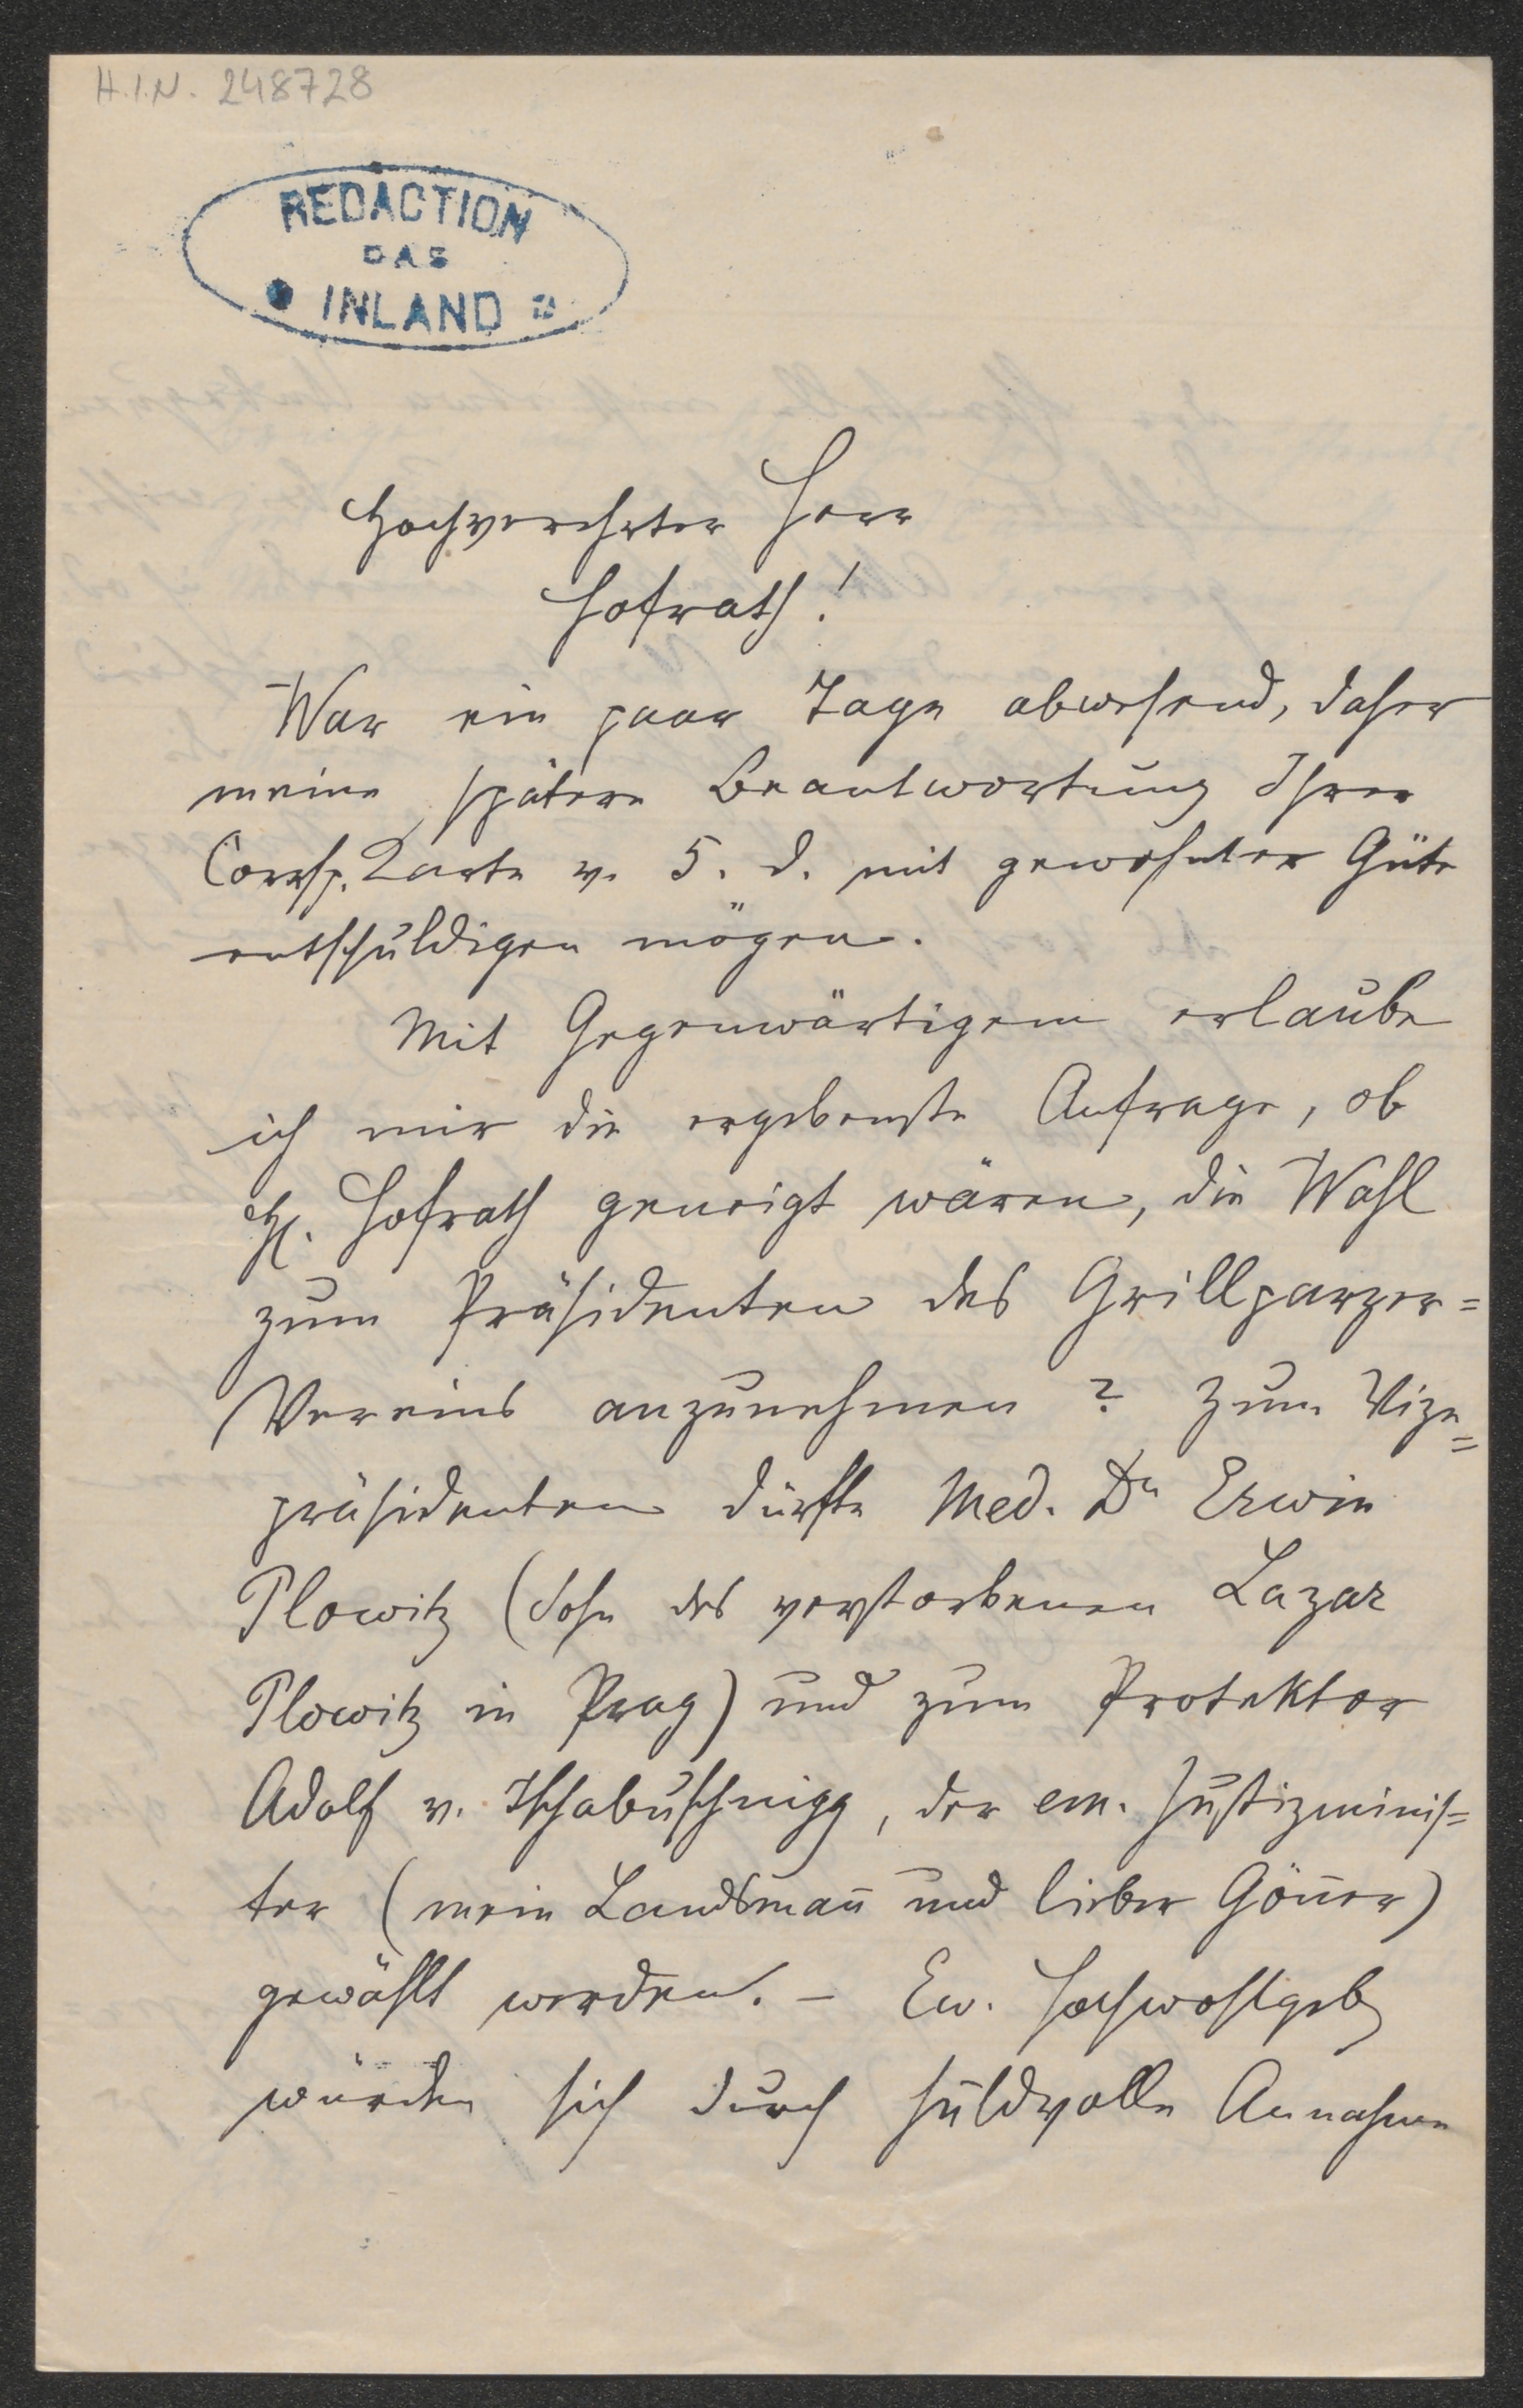 H.I.N. 248728
REDACTION
DAS
INLAND
Hochverehrter Herr
Hofrath!
War ein paar Tage abwesend, daher
meine spätere Beantwortung Ihrer
Corresp. Karte v. 5. d. mit gewohnter Güte
entschuldigen mögen.
Mit Gegenwärtigem erlaube
ich mir die ergebenste Anfrage, ob
H. Hofrath geneigt wären, die Wahl
zum Präsidenten des Grillparzer=
Vereins anzunehmen? Zum Vize=
präsidenten dürfte Med. Dr Erwin
Plowitz (Sohn des verstorbenen Lazar
Plowitz in Prag) und zum Protektor
Adolf v. Tschabuschnigg, der em. Justizminis=
ter (mein Landsman̄ und lieber Gön̄er)
gewählt werden. – Ew. Hochwohlgeb
würden sich durch huldvolle Annahme